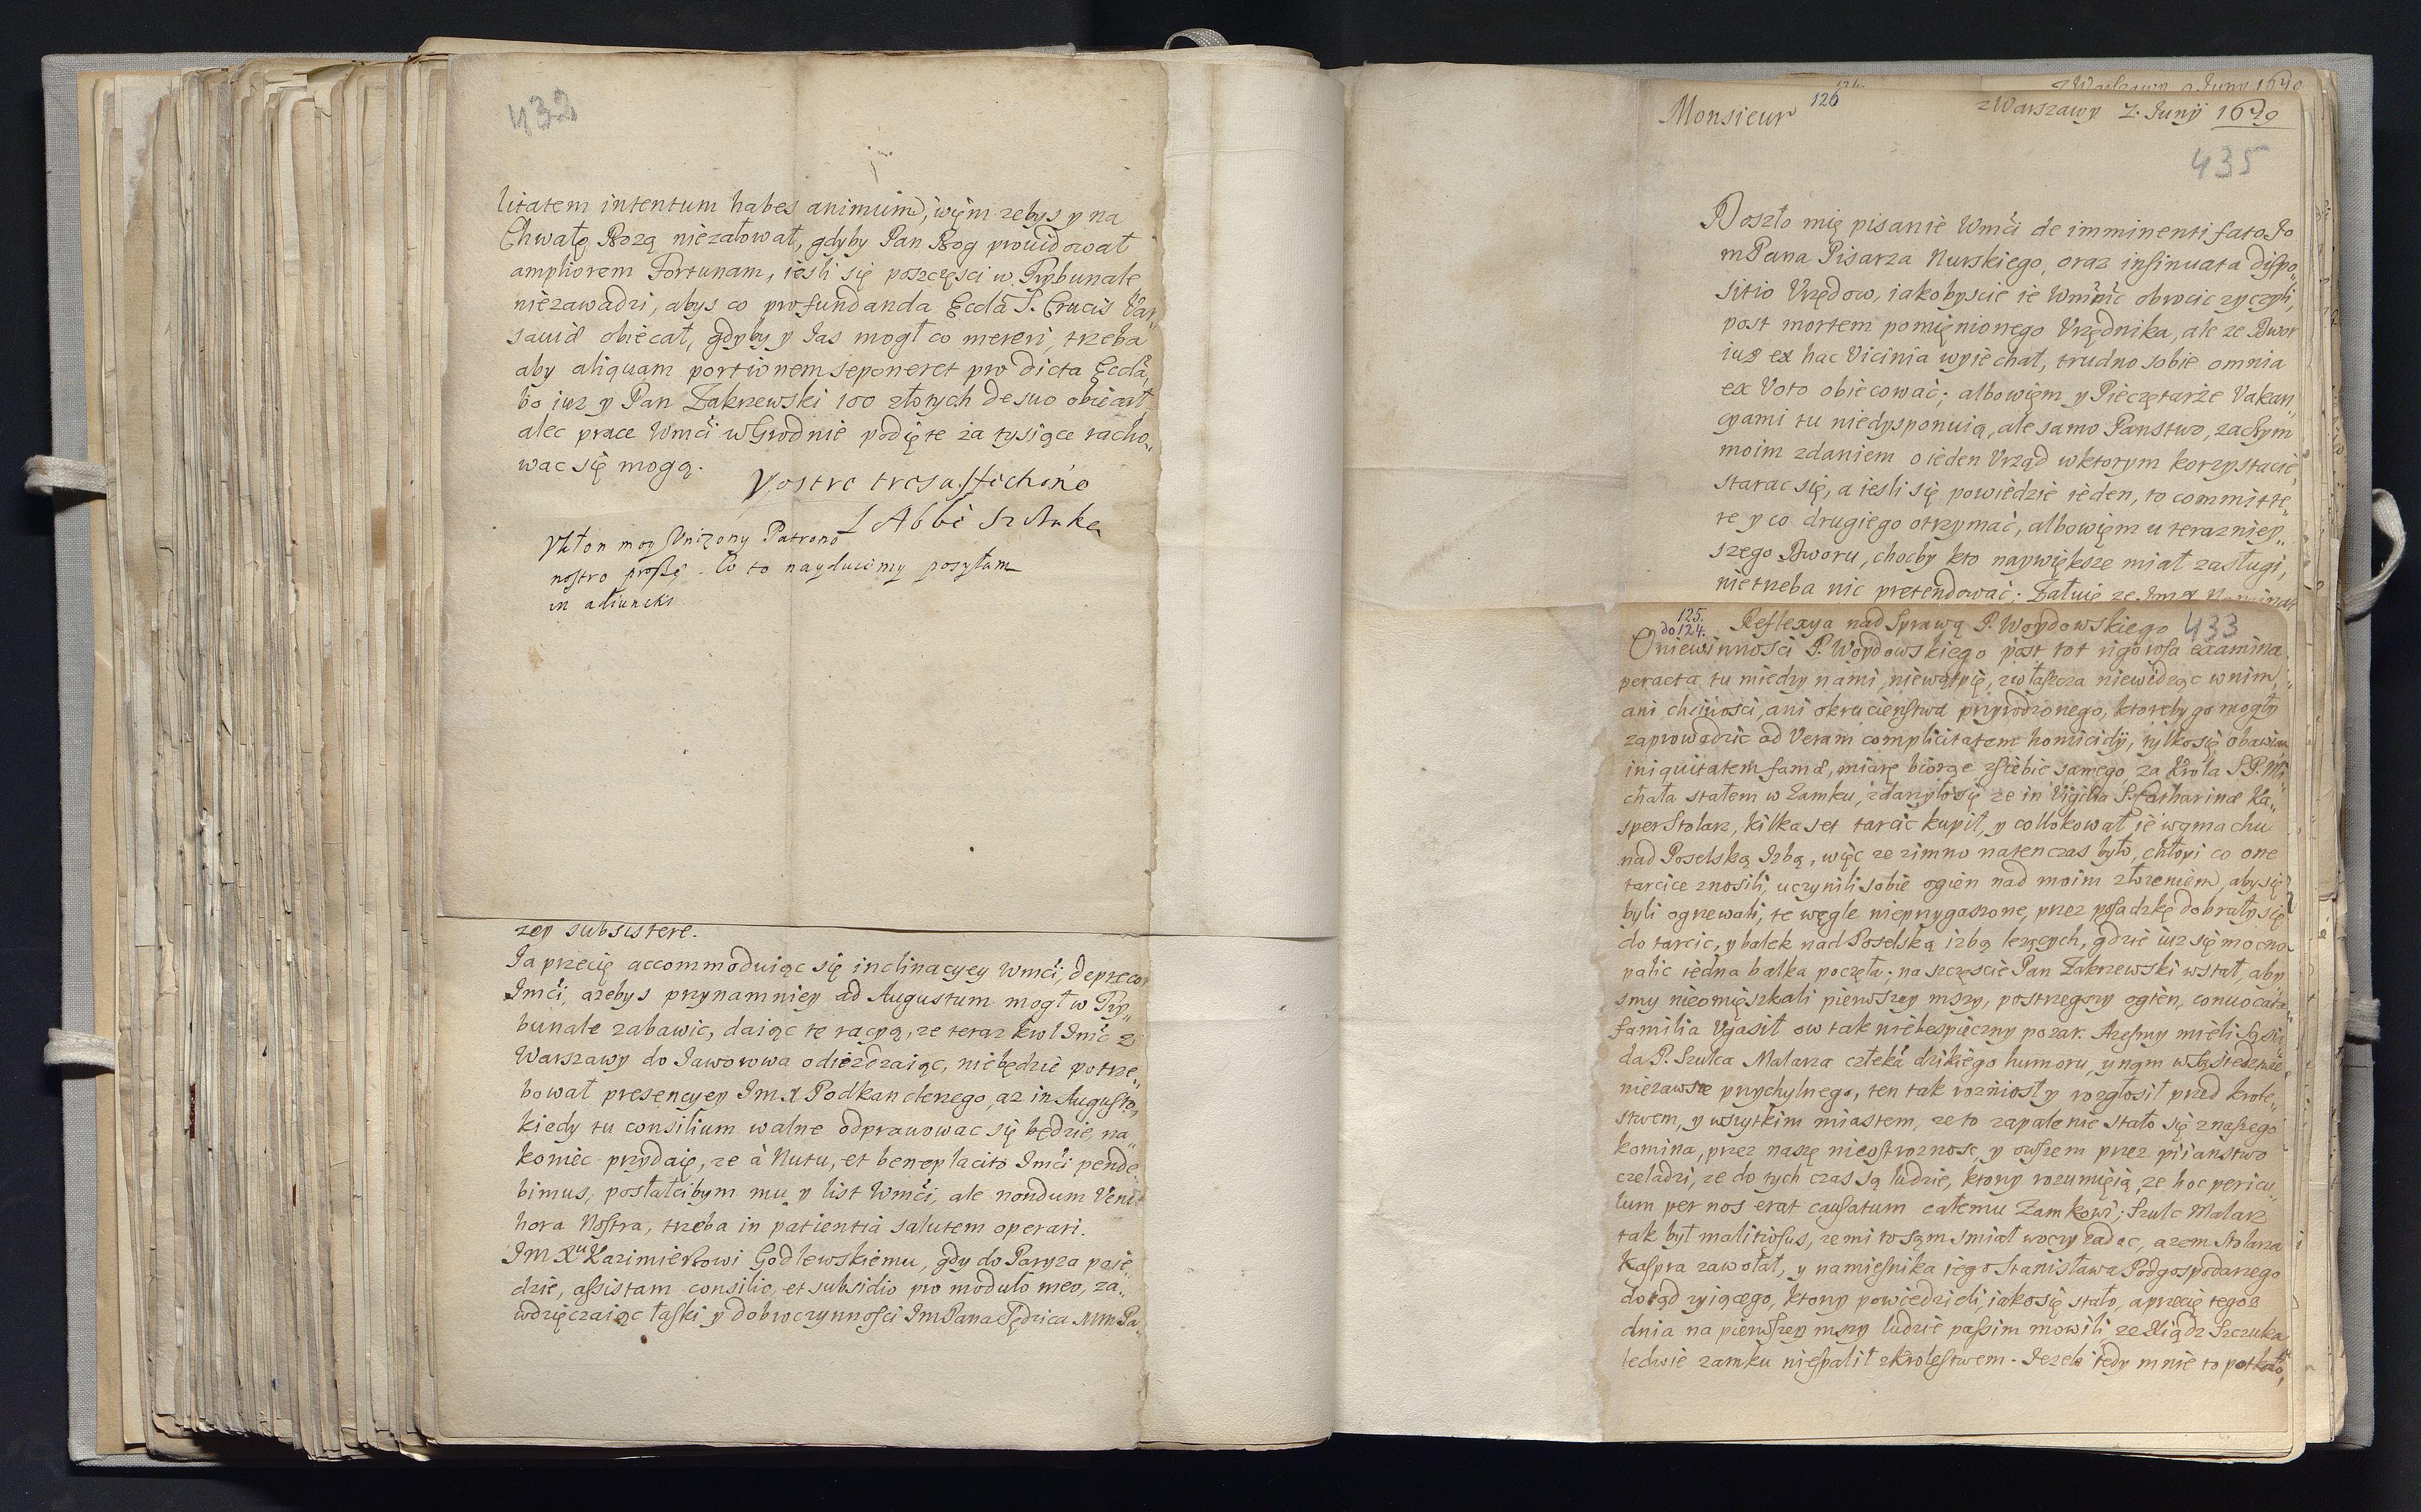 432
litatem intentum habes animum, więm zebys y na
Chwałę Bozą niezałował, gdyby Pan Bog prouidował
ampliorem Fortunam, iesli się poszczęsci w Trybunale
niezawadzi, abys co pro fundanda Eccla S. Crucis Var„
sauiæ obiecał, gdyby y Jas mogł co mereri, trzeba
aby aliquam portionem seponeret pro dicta Eccla,
bo iuz y Pan Zakrzewski 100 złotych de suo obiecał
alec prace Wmći w Grodnie podięte za tysiące racho„
wac się mogą.
Vostre tres affectioné
L'Abbé Szczuka
Ukłon moy Unizony Patrono
nostro proszę. Co to nayduiemy posyłam
in adiuncki
zey subsistere.
Ja przecię accommoduiąc się inclinacyey Wmći, deprecor
Imći, azebys przynamniey ad Augustum mogł w Try„
bunale zabawic, daiąc tę racyą, ze teraz Krol Imć z
Warszawy do Jaworowa odiezdzaiąc, niebędzie potrze„
bował presencyey Im X Podkanclerzego, az in Augusto,
kiedy tu consilium walne odprawowac się będzie, na
koniec przydaię, ze à Nutu, et beneplacito Imći pende„
bimus, posłałcibym mu y list Wmći, ale nondum Venit
hora Nostra, trzeba in patientia salutem operari.
Im Xu Kazimierzowi Godlewskiemu, gdy do Paryza poie„
dzie, assistam consilio, et subsidio pro modulo meo, za„
wdzięczaiąc łaski y dobroczynnosci Im Pana Sędzica MM Pa„
z Warszawy 9 Juny 1679
126
Monsieur
z Warszawy 7. Junij 1679
435
Doszło mię pisanie Wmći de imminenti fato Jo
m Pana Pisarza Nurskiego, oraz insinuata dispo„
sitio Vrzędow, iakobyscie ie Wmć obrocic zyczyli,
post mortem pomięnionego Vrzędnika, ale ze Dwor
iuz ex hac Vicinia wyiechał, trudno sobie omnia
ex Voto obiecować; albowięm y Pieczętarze Vakan„
cyami tu niedysponuią, ale samo Panstwo, zaczym
moim zdaniem o ieden Vrząd w ktorym korzystacie,
starac się, a iesli się powiedzie ieden, to committe„
re y co drugiego otrzymać, albowięm u terazniey„
szego Dworu, chocby kto naywiększe miał zasługi,
nietrzeba nic pretendować; Załuię ze Im X
125.
do 124.
Reflexya nad Sprawą P. Woydowskiego
433
O niewinnosci P. Woydowskiego post tot rigorosa examina
peracta tu miedzy nami, niewątpię, zwłaszcza niewidząc w nim,
ani chciwosci, ani okrucieństwa przyrodzonego, ktoreby go mogły
zaprowadzic ad Veram complicitatem homicidij, tylko się obawiam
iniquitatem famæ, miarę biorąc z siebie samego, za Krola S.P. Mi„
chała stałem w Zamku, zdarzyło się ze in Vigilia S. Catharinæ Ka„
sper Stolarz, kilka set tarcic kupił, y collokował ie w gmachu
nad Poselską Izbą, więc ze zimno natenczas było, chłopi co one
tarcice znosili, uczynili sobie ogien nad moim złozeniem, aby się
byli ogrzewali, te węgle nieprzygaszone, przez posadzkę dobrały się
do tarcic, y balek nad Poselską izbą lezących, gdzie iuz się mocno
palic iedna balka poczęła; na szczęscie Pan Zakrzewski wstał, aby
smy nieomięszkali pierwszey mszy, postrzegszy ogien, conuocata
familia Vgasił ow tak niebespieczny pozar. Azesmy mieli Sąsia
da P. Szulca Malarza człeka dzikiego humoru, y nąm w Sąsiedztwie
niezawsze przychylnego, ten tak rozniosł y rozgłosił przed Krole„
stwem, y wszytkim miastem, ze to zapalenie stało się z naszego
komina, przez naszę nieostroznosc, y owszem przez piianstwo
czeladzi, ze do tych czas są ludzie, ktorzy rozumięią, ze hoc pericu„
lum per nos erat causatum całemu Zamkowi; Szulc Malarz
tak był malitiosus, ze mi to sąm smiał w oczy zadac, azem Stolarza
Kaspra zawołał, y namiesnika iego Stanisława Podgospodarzego
dotąd zyiącego, ktorzy powiedzieli, iako się stało, a przecię tegoz
dnia na pierwszey mszy ludzie passim mowili ze Xiądz Szczuka
ledwie zamku niespalił z Krolestwem. Jezeli tedy mnie to potkało,